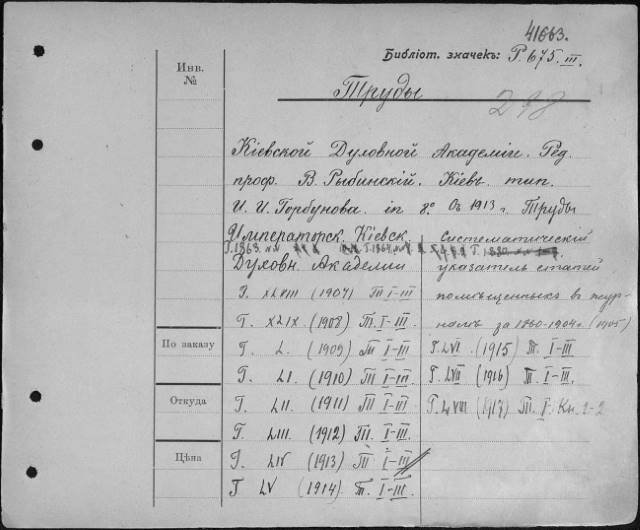 41663.
Библіот. значекъ: Р. 675. III.
Инв. №
Труды
Кіевской Духовной Академіи. Ред.
проф. В. Рыбинскій. Кіевъ. тип.
И. И. Горбунова. in 8°. Съ 1913 г. Труды
Императорск. Кіевск.
Духовн. Академии
Г. XLVIII (1907) Т. I-III
Г. XLIX (1908) Т. I-III
Г. L. (1909) Т. I-III
Г. LI. (1910) Т. I-III
Г. LII. (1911) Т. I-III
Г. LIII. (1912) Т. I-III
Г. LIV (1913) Т. I-III
Г. LV (1914) Т. I-III.
систематическій
указатель статей
помѣщенныхъ в журналѣ
за 1860-1904 г. (1905)
Г. LVI. (1915) Т. I-III.
Г. LVII (1916) Т. I-III.
Г. LVIII (1917) Т. I. Кн. 1-2
По заказу
Откуда
Цѣна